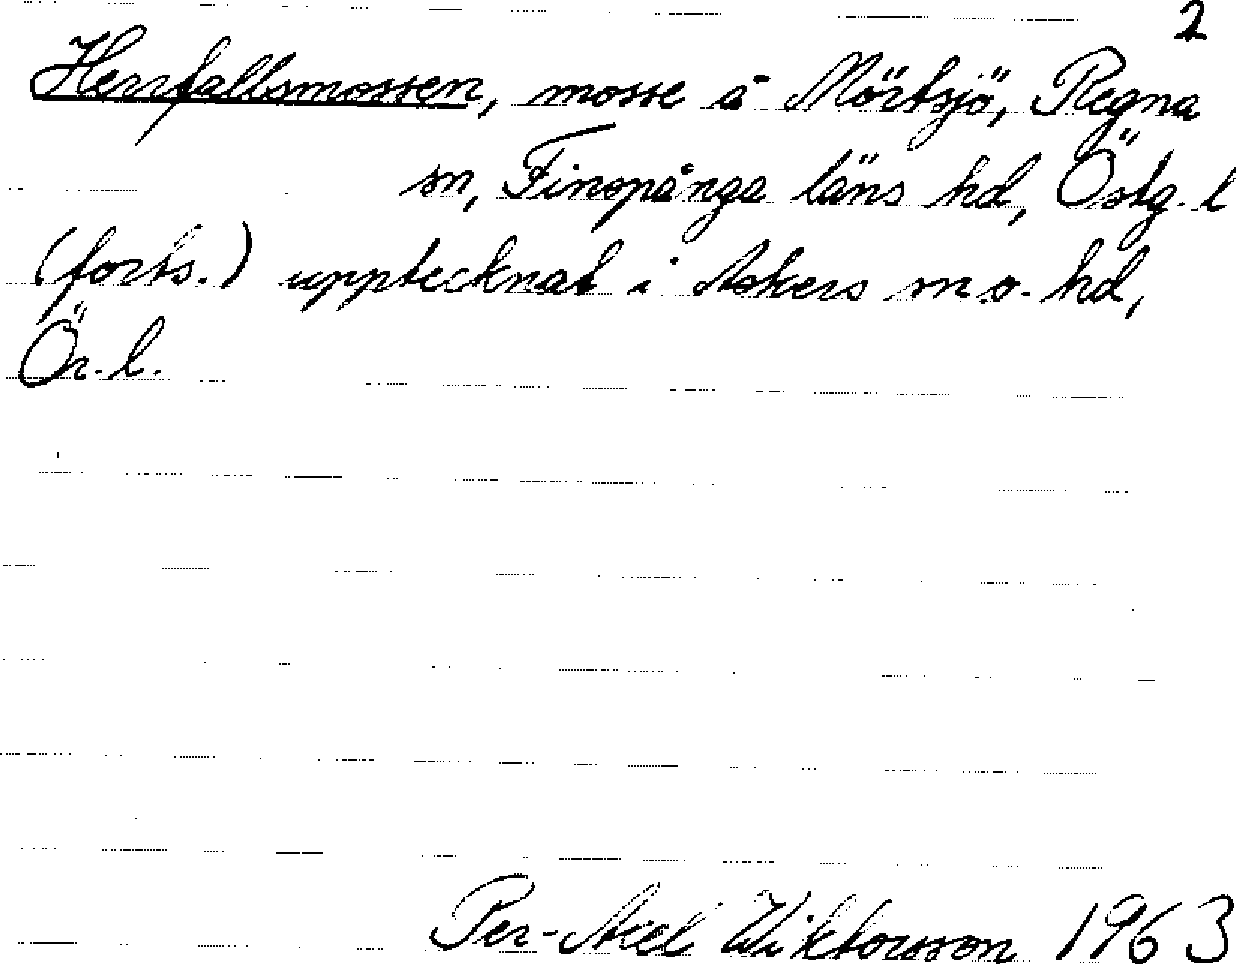 2
Herrfallsmossen, mosse å Mörtsjö, Regna
sn, Finspånga läns hd, Östg. l
(forts.) upptecknat i Askers sn o. hd,
Ör. l.
Per-Axel Wiktorsson 1963